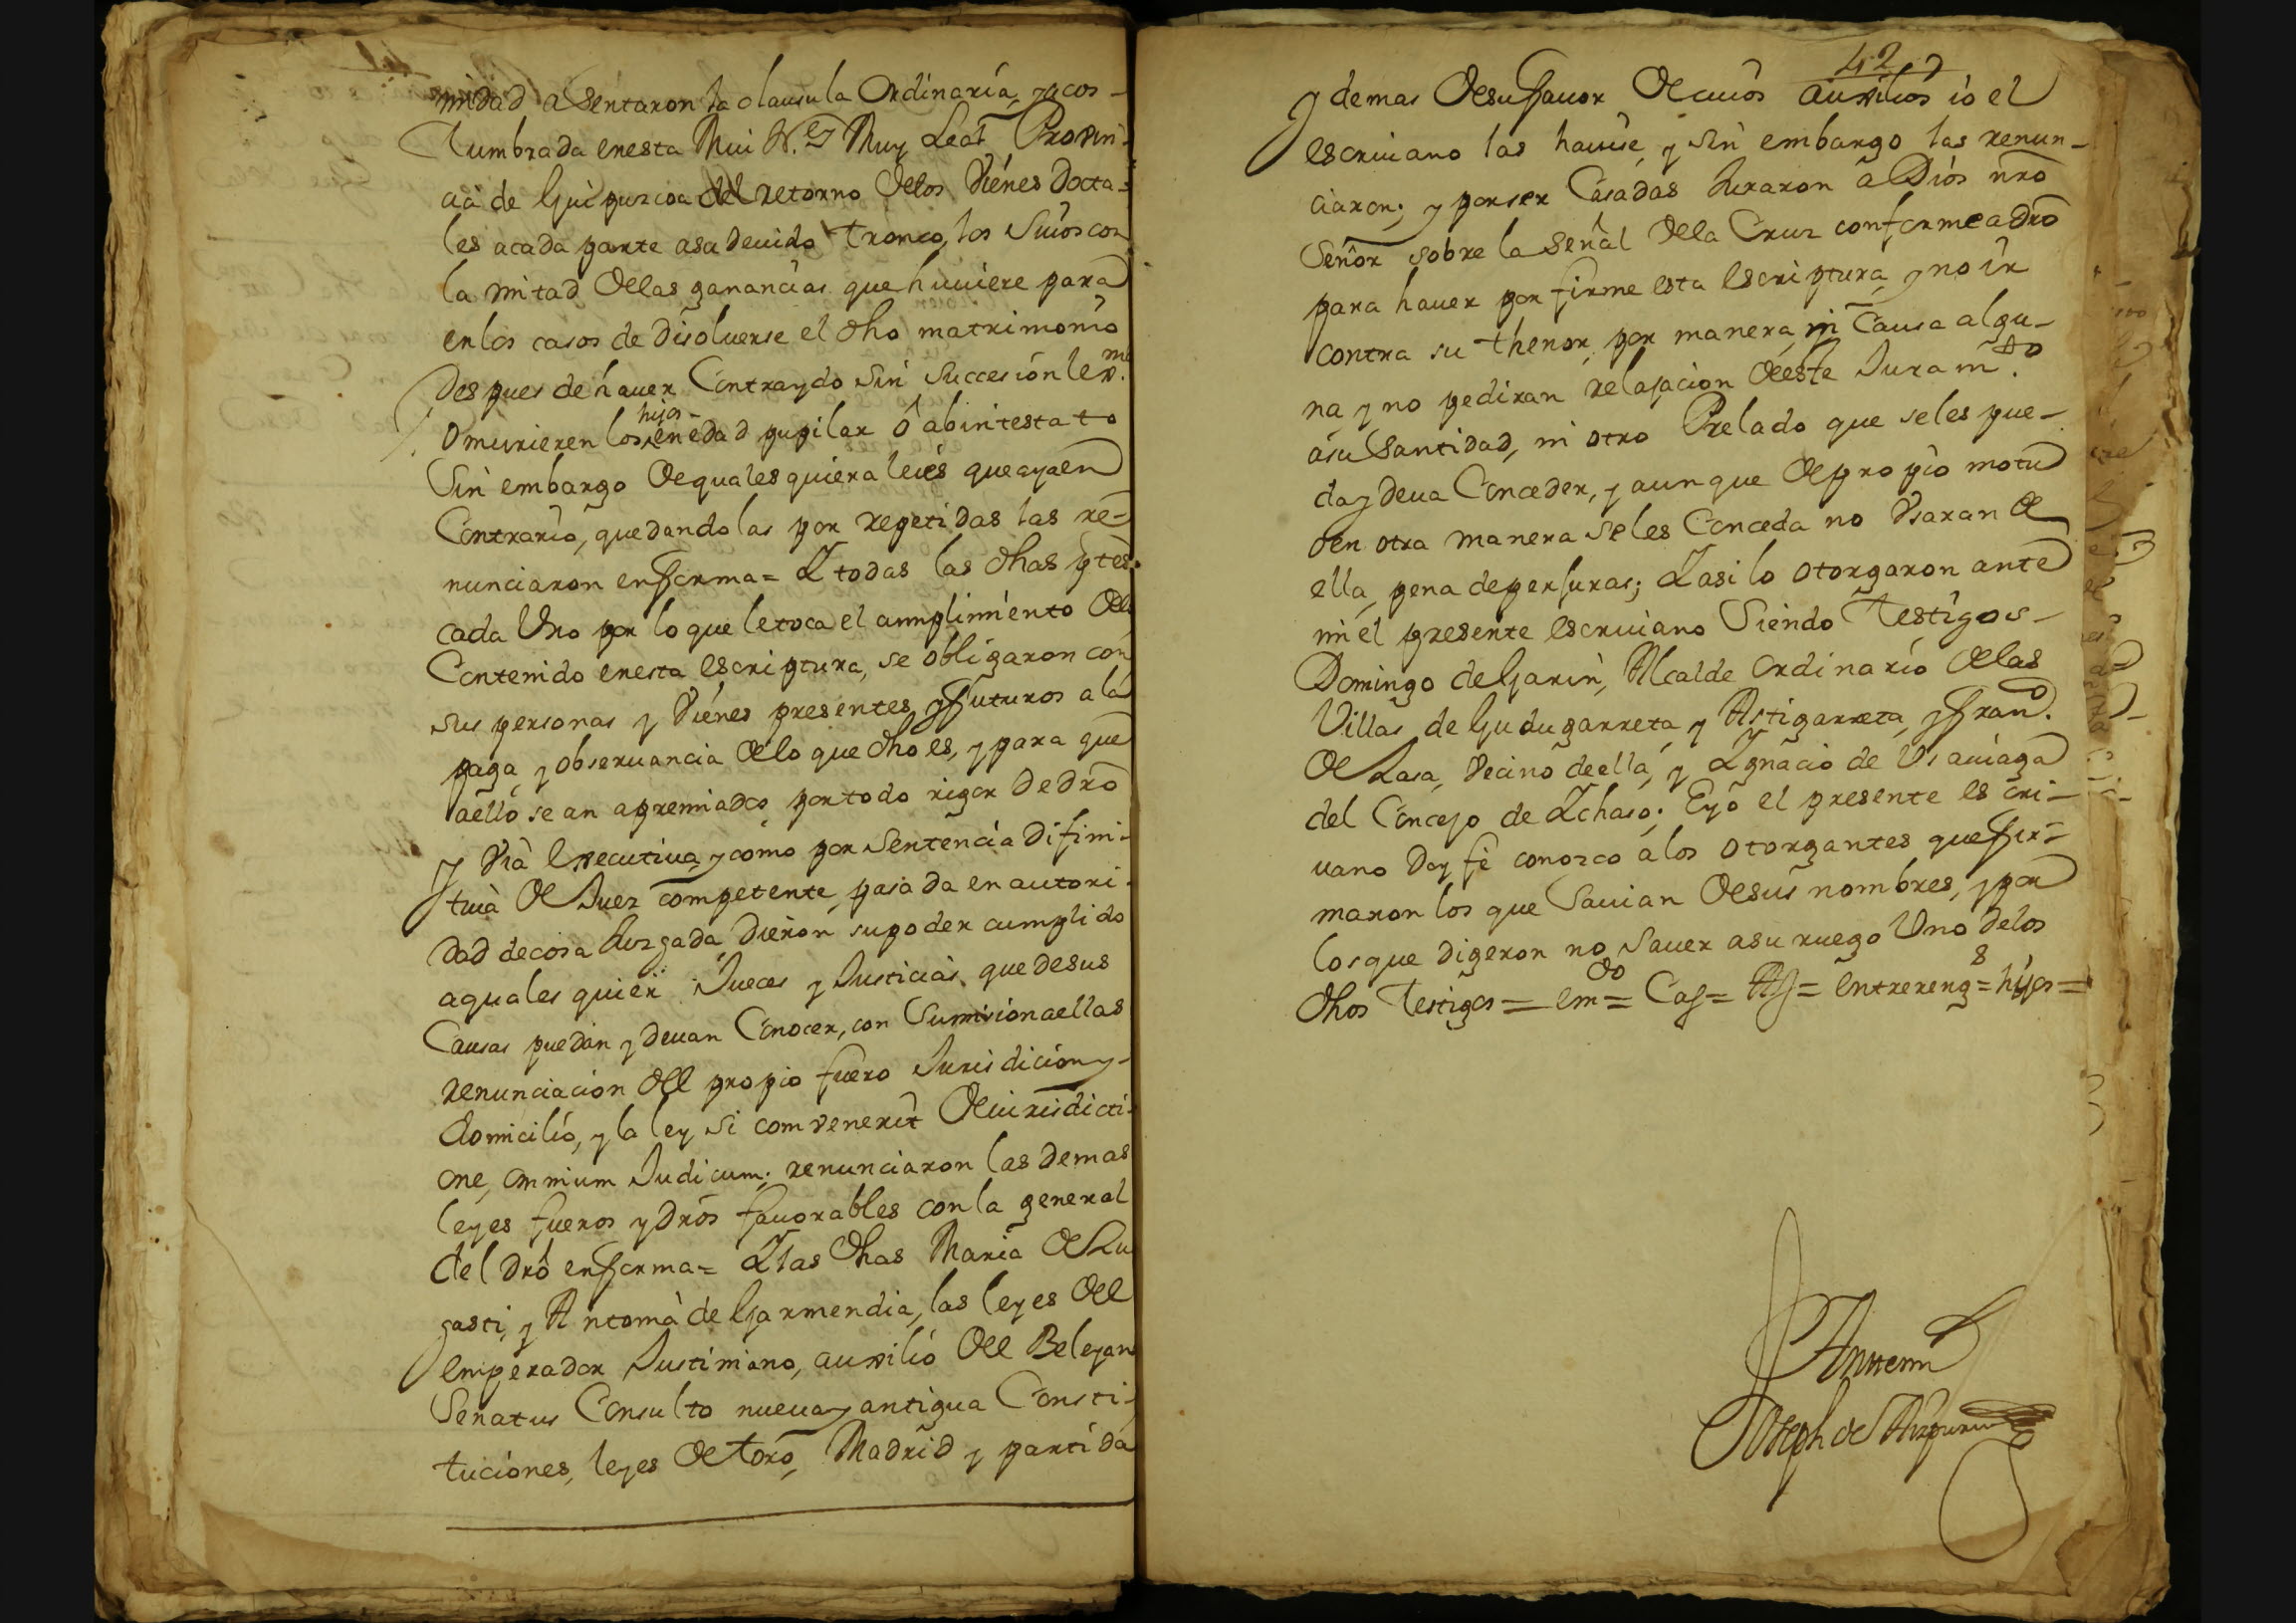 midad asentaron la clausula Ordinaria, y acos-
tumbrada en esta Mui N. y Muy Leal Provin-
cia de Guipuzcoa del retorno de los Vienes Dota-
les a cada parte a su devido tronco, los Suios con
la mitad de las ganancias que huviere para
en los casos de disolverse el dho matrimonio
Despues de haver Contraydo Sin Succesion
o murieren los hijos en edad pupilar ô abintestato
Sin embargo de qualesquiera leies que aya en
Contrario, que dandolas por repetidas las re-
nunciaron en forma = Y todas las dhas ptes
cada Uno por lo que le toca el cumplimiento del
Contenido en esta escriptura, se obligaron con
sus personas y Vienes presentes y futuros a la
paga, y observancia de lo que dho es, y para que
a ello sean apremiados por todo rigor de dro
y Via executiva, y como por Sentencia difini-
tiva de Juez competente, pasada en autori-
dad de cosa Juzgada, dieron su poder cumplido
a quales quier Jueces y Justicias que de sus
Causas puedan y devan Conocer, con Sumision a ellas
renunciacion del propio fuero Jurisdicion y
domicilio, y la ley Si comvenerit de iurisdicti-
one, omnium Judicum; renunciaron las demas
leyes fueros y dros favorables con la general
del dro en forma = Y las dhas Maria de Lu
gasti, y Antonia de Garmendia, las leyes del
emperador Justiniano, auxilio del Beleyano
Senatus Consulto nueva y antigua Consti-
tuciones, leyes de toro, Madrid y partida
42
y demas de su favor de cuios auxilios io el
escriuano las havise, y sin embargo las renun-
ciaron; y por ser Casadas Juraron a Dios nro
Señor sobre la señal de la Cruz conforme a dro
para haver por firme esta escriptura, y no ir
contra su thenor, por manera, ni Causa algu-
na, y no pediran relajacion de este Juramto
a su Santidad, ni otro Prelado que se les pue-
da y deva Conceder, y aunque de propio motu
o en otra manera se les Conceda no Usaran de
ella, pena de perjuras; Y asi lo otorgaron ante
mi el presente escriuano Siendo Testigos-
Domingo de Garin, Alcalde ordinario de las
Villas de Gudugarreta, y Astigarreta, y Franco
de Lasa, Vecino de ella, y Ygnacio de Usauiaga
del Concejo de Ychaso; E yo el presente escri-
uano doy fe conozco a los otorgantes que fir-
maron los que Savian de sus nombres, y por
los que digeron no Saver a su ruego Uno de los
dhos testigos = emdo = Cas = As = entrerengs = hijos =
Ante mi
Joseph de Aizpuru